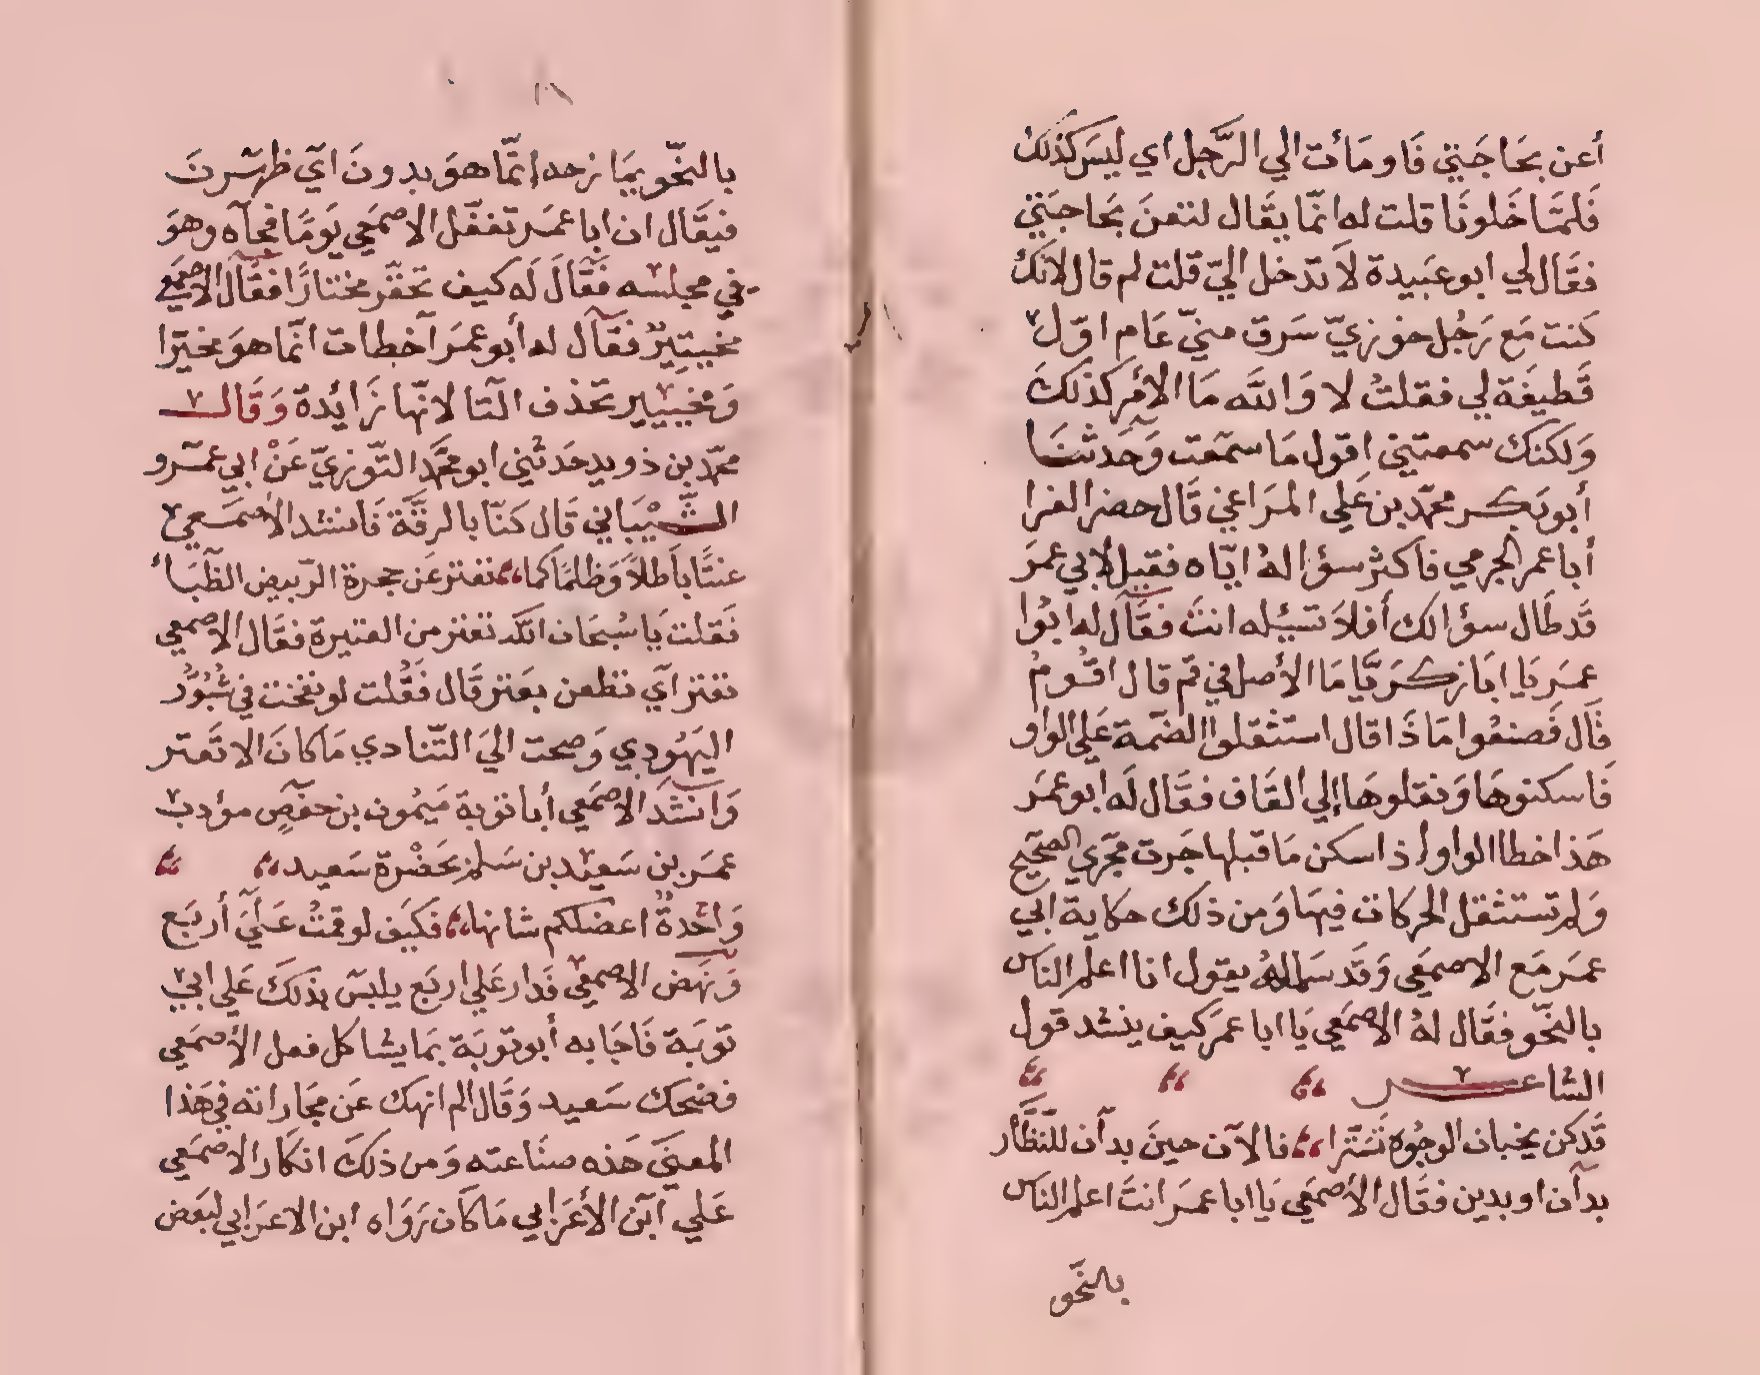 أعن بحَاجَتي فَاومَأت الي الرَّجل اي ليسَ كذلكَ
فَلمَّا خَلونَا قلت له انمّا يقَال لتعنَ بحَاجَتي
فقَال لي ابو عبَيدة لاَ تدخل اليّ قلت لم قال لانكَ
كنت مَع رَجُل خوزيّ سَرق منيّ عَام اوّل
قَطيفَة لي فقلتُ لا وَالله مَا الأمر كذلكَ
وَلكنك سمعتني اقول مَا سمعت وَحَدثنَا
أبو بَكر محمّد بن عَلي المرَاغي قَال حضر الفرا
أبا عمر الجرمي فاكثر سؤاله ايّاه فقيل لابي عمرَ
قَد طَال سؤالك أفلاَ تسئله انتَ فقَال له ابوُا
عمَر يَا ابَا زكرَيَّا مَا الأصل في قم قال اقوُمُ
قَال فَصنعُوا مَا ذَا قال استثقلوا الضمة عَلي الواو
فَاسكنوهَا وَنقلوهَا إلي القَاف فقَال لَه ابو عمَر
هَذا خطا الواو إذا سكن مَا قبلها جَرت مجَري الصَّحِيح
وَلم تستثقل الحركات فيهَا وَمن ذلك حكاية ابي
عمَر مَع الاصمعَي وَقَد سَماله يقول انا اعلم الناس
بالنحّو فقَال لهُ الاصمَعي يَا ابا عمَر كيف ينشد قول
الشاعر
قَدكن يخبان الوجُوه تَسَترا فالآن حينَ بدأن للنّظّار
بدأن او بدين فقَال الأصمعَي يَا ابا عمَر انتَ اعلم الناس
بالنحَّو
بالنحَّو يمَازحه إنمَّا هوَ بدونَ اي ظهرنَ
فيقَال ان ابا عمَر تغفّل الاصمعَي يَومًا فجآه وهوَ
في مجلسه فَقَالَ لَه كيف تحقّر مختارًا فقَال الاصمَعي
مخيتيرٌ فقَال له أبو عمَر اخطات انمّا هوَ مخيرّا
وَمخييير تحذف التا لانهّا زَائدة وَقَال
محمّد بن ذويد حَدثني ابو محمَّد التّوزيّ عَنْ ابي عمَرو
الشّيْبَاني قَال كنّا بالرقَّة فَانشد الاصمَعي
عنتًا بَاطلاً وَظلمًا كما تعتز عَن حجرة الرّبيض الظبَاُ
فَقلت يَا سُبحَان الله تعتر من العتيرة فقَال الاصمعي
تعتز اي تطعن بعَنز قَال فَقُلت لو نفخت في شَبُوّر
اليَهُودي وَصحت اليَ التّنادي مَا كانَ الا تَعتر
وَانشَد الاصمَعي أبا توبة ميَمون بن حفَصٍ مؤدب
عمَر بن سَعيَد بن سَلم بحَضْرة سَعيد
وَاحُدةٌ اعضلكم شانها فكيَف لوقمتُ عَليَ أربَع
وَنهَض الاصمعَي فَدار عَلي اربَع يلبسّ بذَلكَ عَلي ابي
توبَة فَاجَابه أبو توبَة بمَا يشاكل فعل الأصمَعي
فضحك سَعيد وَقَال الم انهك عَن مجَاراته في هَذا
المعنَى هَذه صنَاعته وَمن ذلكَ انكَار الاصمَعي
عَلي ابن الأعَرابي مَا كَان رَوَاه ابن الاعرَابي لبَعض